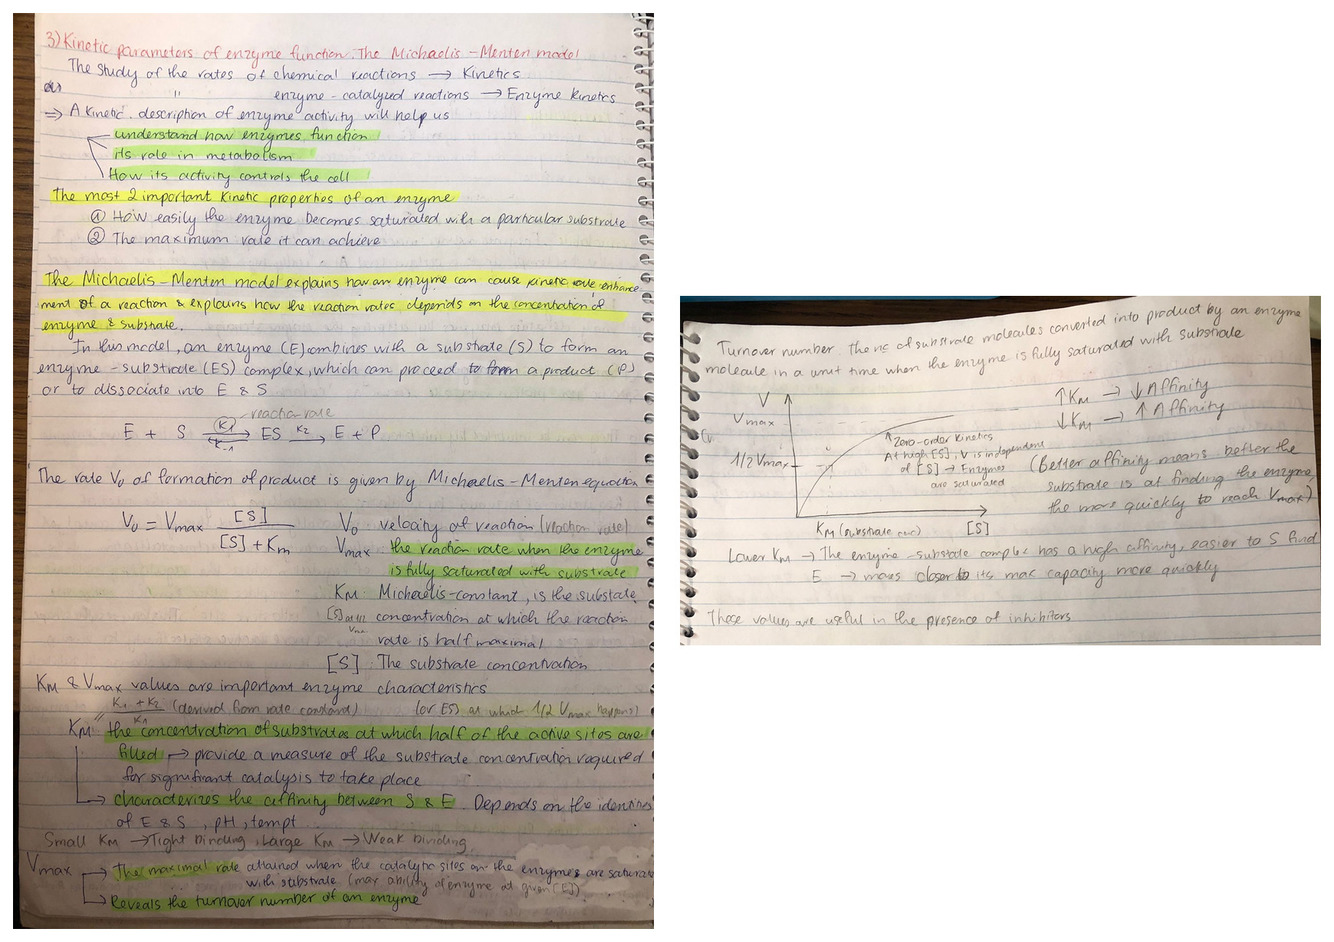 3) Kinetic parameters of enzyme function. The Michaelis-Menten model
The study of the rates of chemical reactions → Kinetics
" enzyme-catalyzed reactions → Enzyme kinetics
⇒ A kinetic description of enzyme activity will help us
understand how enzymes function
its role in metabolism
How its activity controls the cell
The most 2 important kinetic properties of an enzyme
① How easily the enzyme becomes saturated with a particular substrate
② The maximum rate it can achieve
The Michaelis-Menten model explains how an enzyme can cause kinetic rate enhance
ment of a reaction & explains how the reaction rates depends on the concentration of
enzyme & substrate.
In this model, an enzyme (E) combines with a substrate (S) to form an
enzyme-substrate (ES) complex, which can proceed to form a product (P)
or to dissociate into E & S
reaction rate
E + S ⇌ ES → E + P
K1 K-1 K2
The rate V0 of formation of product is given by Michaelis-Menten equation
V0 = Vmax [S] / [S] + Km
V0 velocity of reaction (reaction rate)
Vmax the reaction rate when the enzyme
is fully saturated with substrate
KM Michaelis-constant, is the substate
[S] at 1/2 Vmax concentration at which the reaction
rate is half maximal
[S] : The substrate concentration
KM & Vmax values are important enzyme characteristics
K1 + K2 / K1 (derived from rate constand) (or ES) at which 1/2 Vmax happens)
KM" the concentration of substrates at which half of the active sites are
filled → provide a measure of the substrate concentration required
for significant catalysis to take place
→ characterizes the affinity between S & E. Depends on the identities
of E & S, pH, tempt
Small KM → Tight binding, Large KM → Weak binding
Vmax → The maximal rate attained when the catalytic sites on the enzymes are saturate
with substrate (max ability of enzyme at given [E])
→ Reveals the turnover number of an enzyme
Turnover number: the nc of substrate molecules converted into product by an enzyme
molecule in a unit time when the enzyme is fully saturated with substrate
V
Vmax
1/2 Vmax
Zero-order kinetics
At high [S], V is independent
of [S] → Enzymes
are saturated
KM (substrate conc) [S]
↑ KM → ↓ Affinity
↓ KM → ↑ Affinity
(Better affinity means better the
substrate is at finding the enzyme,
the more quickly to reach Vmax)
Lower KM → The enzyme-substrate complex has a high affinity, easier to S find
E → moves closer to its max capacity more quickly
These values are useful in the presence of inhibitors